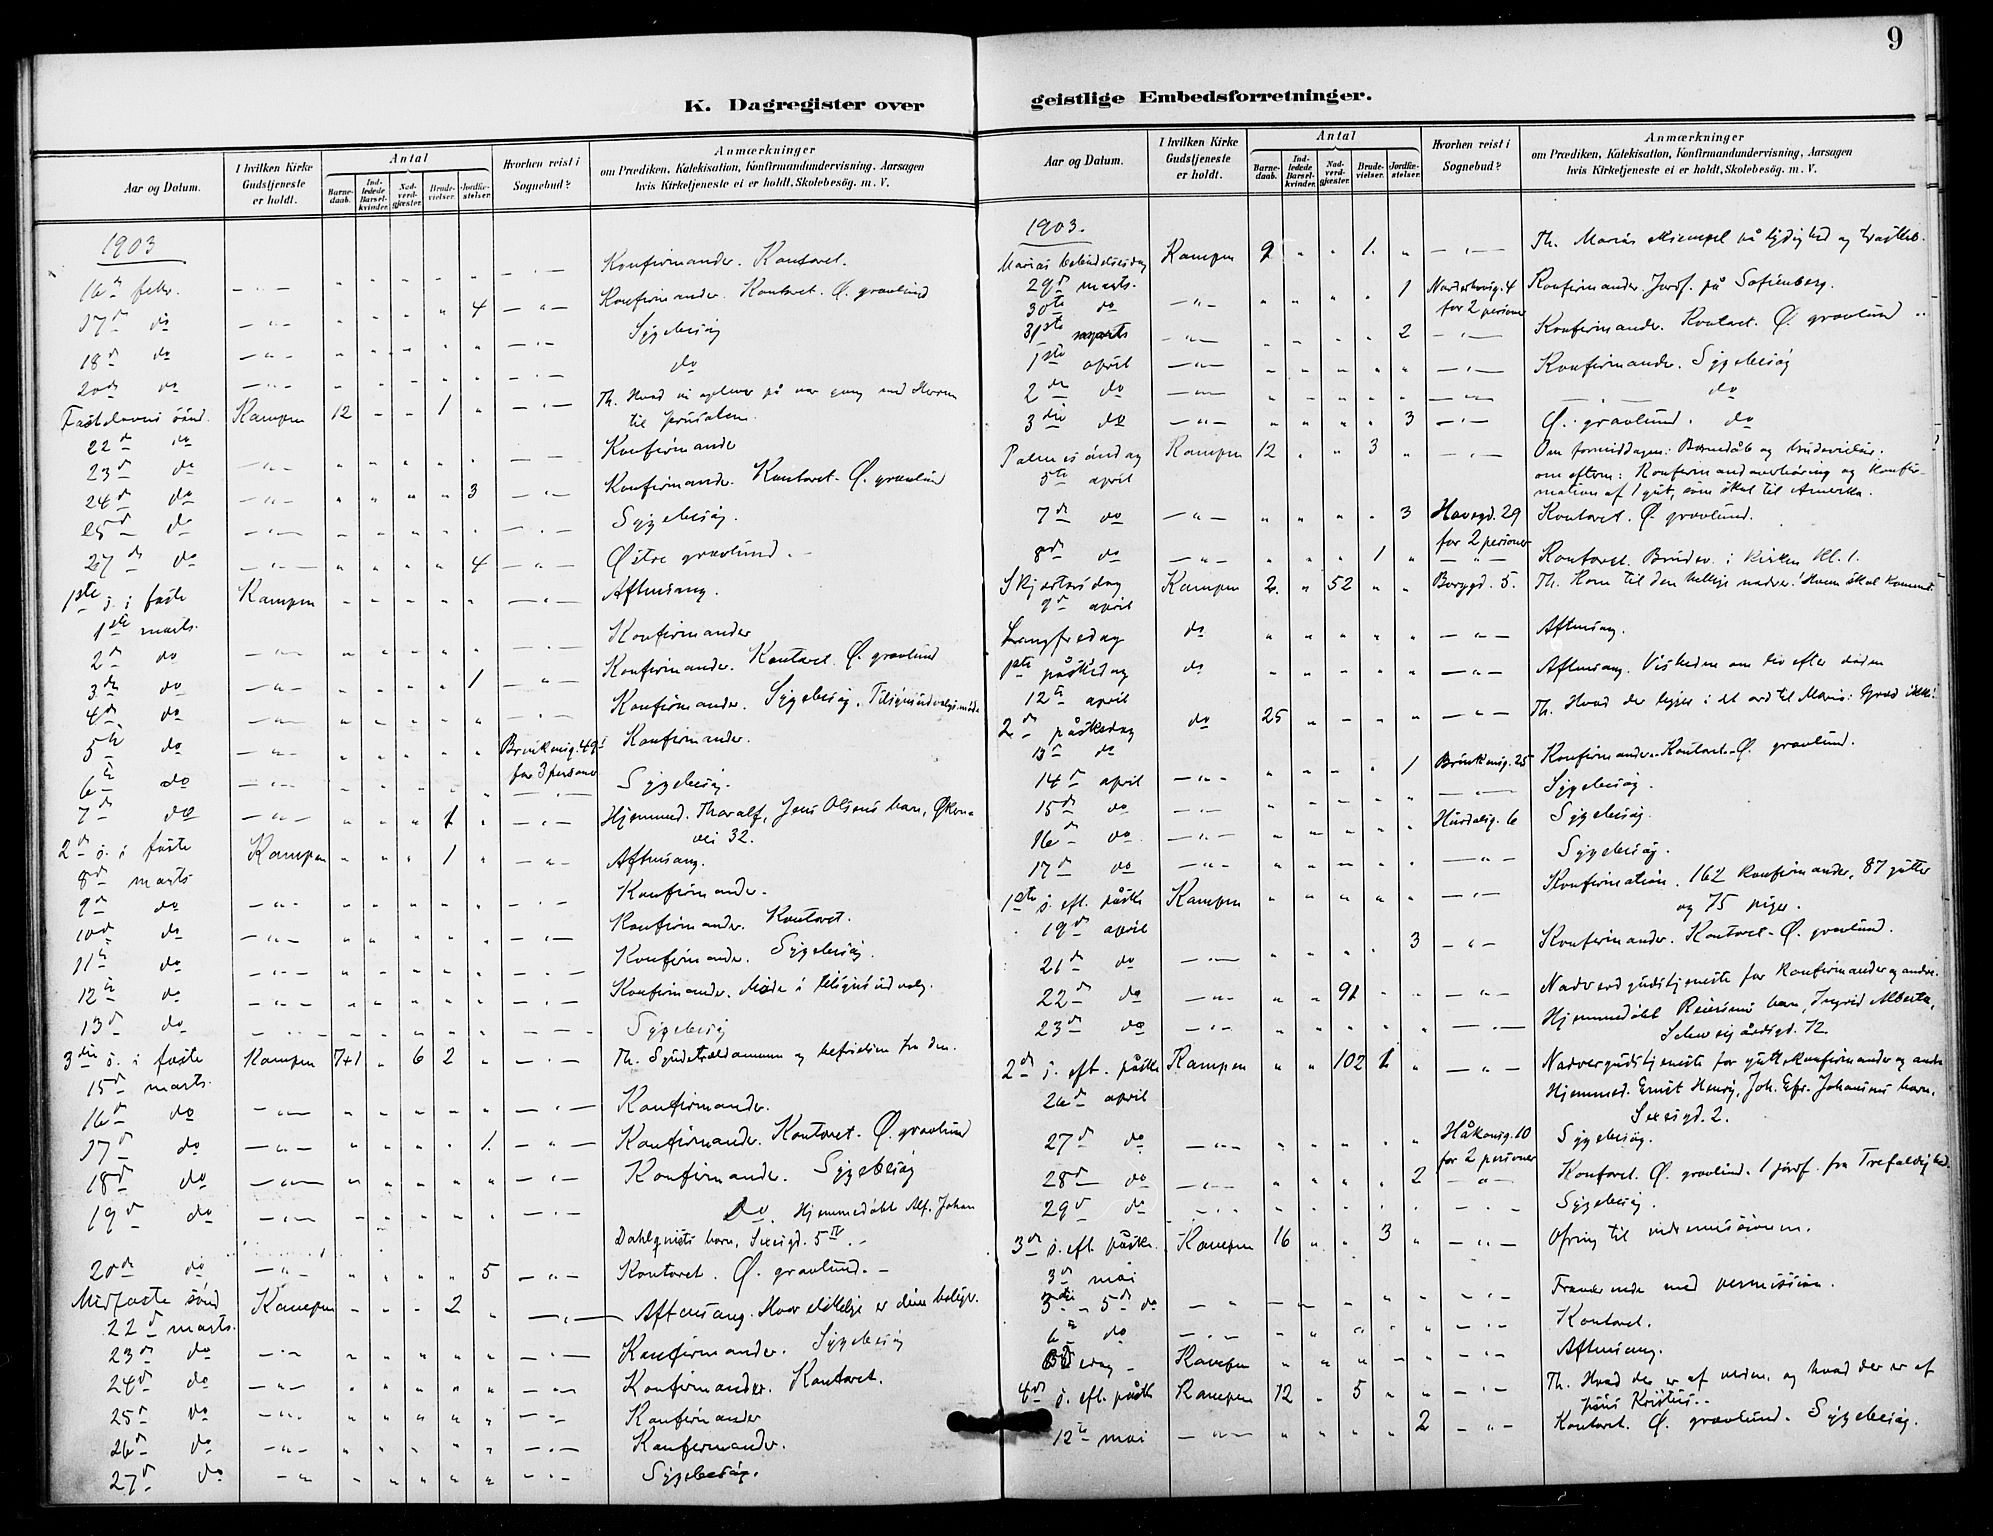 9
K. Dagregister over geistlige Embedsforretninger.
Aar og Datum. I hvilken Kirke Gudstjeneste er holdt. Antal Barnedaab. Indledede Barselkvinder. Nadverdgjæster. Brudevielser. Jordfæstelser. Hvorhen reist i Sognebud? Anmærkninger om Prædiken, Katekisation, Konfirmandundervisning, Aarsagen hvis Kirketjeneste ei er holdt, Skolebesøg. m. V.
1903
16de febr. Konfirmander. Kontoret.
17de do 4 Konfirmander. Kontoret. Ø. gravlund
18de do Sygebesøg
20de do do
Fastelavns sønd. Kampen 12 1 Th. Hvad vi oplever på vor gang med Herren
22de do til Jerusalem.
23de do Konfirmander
24de do 3 Konfirmander. Kontoret. Ø. gravlund
25de do Sygebesøg.
27de do 4 Østre gravlund.
1ste s. i faste Kampen Aftensang.
1ste marts.
2de do Konfirmander
3die do 1 Konfirmander. Kontoret. Ø. gravlund
4de do Konfirmander. Sygebesøg.
5te do for 3 personer Konfirmander.
6te do Sygebesøg.
7de do 1 Hjemmed. Tharalf, Jens Olsens barn,
vei 32.
2den s. i faste Kampen 1 Aftensang.
8de marts
9de do Konfirmander.
10de do Konfirmander. Kontoret.
11te do Konfirmander. Sygebesøg.
12te do Konfirmander. Møde i tilsynsudvalg.
13de do Sygebesøg
3die s. i faste Kampen 7+1 6 2 Th. Syndetrældommen og befrielsen fra den.
15de marts.
16de do Konfirmander.
17de do 1 Konfirmander. Kontoret. Ø. gravlund
18de do Konfirmander. Sygebesøg
19de do Do. Hjemmedøbt Alf. Johan
Dahlquists barn, 5 IV.
20de do 5 Kontoret. Ø. gravlund.
Midfaste sønd Kampen 2 Aftensang. Hvor elskelige er dine boliger.
22de marts.
23de do Konfirmander. Sygebesøg
24de do Konfirmander. Kontoret.
25de do Konfirmander
26de do Konfirmander.
27de do Sygebesøg.
Aar og Datum. I hvilken Kirke Gudstjeneste er holdt. Antal Barnedaab. Indledede Barselkvinder. Nadverdgjæster. Brudevielser. Jordfæstelser. Hvorhen reist i Sognebud? Anmærkninger om Prædiken, Katekisation, Konfirmandundervisning, Aarsagen hvis Kirketjeneste ei er holdt, Skolebesøg. m. V.
1903.
Marias bebudelsesdag Kampen 9 1 Th. Marias eksempel på lydighed og
29de marts.
30te do 1 for 2 personer Konfirmander. Jordf. på Sofienberg.
31ste marts 2 Konfirmander. Kontoret. Ø. gravlund
1ste april Konfirmander. Sygebesøg
2de do do
3die do 3 Ø. gravlund. do
Palmesøndag Kampen 12 3 Om formiddagen: Barnedåb og brudevielse:
5te april om efterm: Konfirmandoverhøring og konfirmation
af 1 gut, som skal til Amerika.
7de do 3 Havegd. 29 Kontoret. Ø. gravlund.
for 2 personer
8de do 1 Kontoret. Brudev. i kirken Kl. 1.
Skjærtorsdag Kampen 2 52 Borggd. 5. Th. Kom til den hellige nadver! Hvem skal komme?
9de april
Langfredag do Aftensang.
1ste påskedag do Aftensang. Visheden om liv efter døden
12te april
2den påskedag do 25 Th. Hvad der ligger i et ord til Maria: Græd ikke!
13de do
14de april 1 25 Konfirmander. Kontoret. Ø. gravlund.
15de do Sygebesøg.
16de do Hurdalsg. 6 Sygebesøg.
17de do Sygebesøg.
1ste s. eft. påske Kampen Konfirmation. 162 konfirmander, 87 gutter
19de april og 75 piger.
21de do 3 Konfirmander. Kontoret. Ø. gravlund.
22de do 91 Nadverdgudstjeneste for konfirmander og andre.
23de do Hjemmedøbt barn, Ingrid Alberta,
Schweigårdsgd. 72.
2den s. eft. påske Kampen 102 1 Nadvergudstjeneste for gutte konfirmander og andre
26de april Hjemmed. Ernst Henry, Joh. Johansens barn,
2.
27de do Håkonsg. 10 Sygebesøg.
for 2 personer
28de do 2 Kontoret. Ø. gravlund. 1 jordf. fra Trefoldighed.
29de do Sygebesøg.
3die s. eft. påske. Kampen 16 3 Ofring til indremissionen.
3de mai
5de do Fraværende med permission.
6te do Kontoret.
Bededag Kampen Aftensang.
4de s. eft. påske Kampen 12 5 Th. Hvad der er af verden, og hvad der er af
Jesus Kristus.
12te mai 2 Kontoret. Ø. gravlund. Sygebesøg.